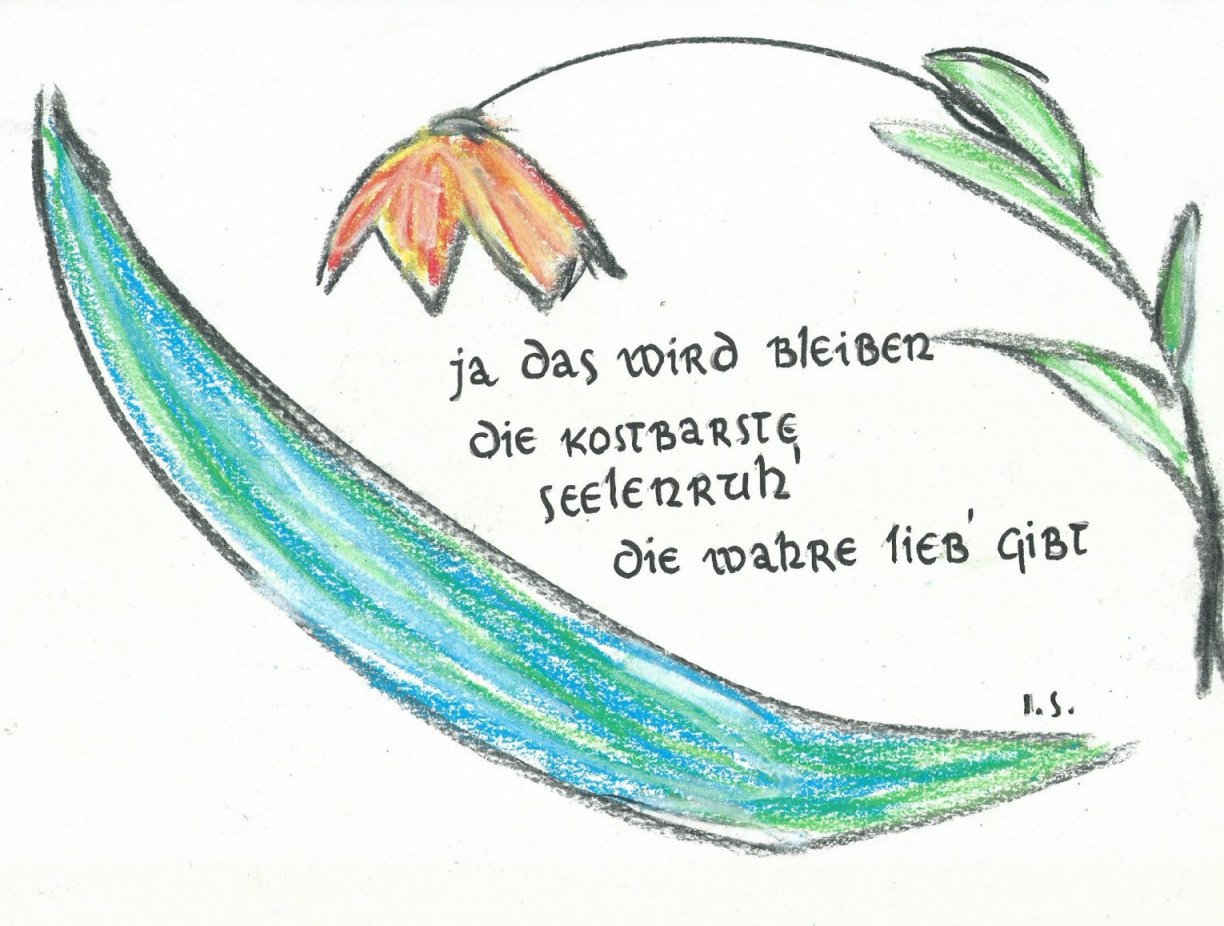 ja das wird bleiben
die kostbarste
seelenruh'
die wahre lieb' gibt
I.S.